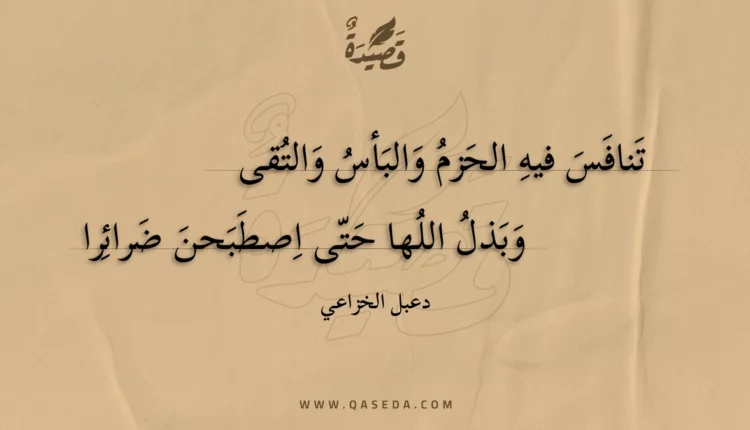 قَصِيدَةٌ
تَنافَسَ فيهِ الحَزمُ وَالبَأسُ وَالتُقى
وَبَذلُ اللُها حَتّى اِصطَبَحنَ ضَرائِرا
دعبل الخزاعي
WWW.QASEDA.COM